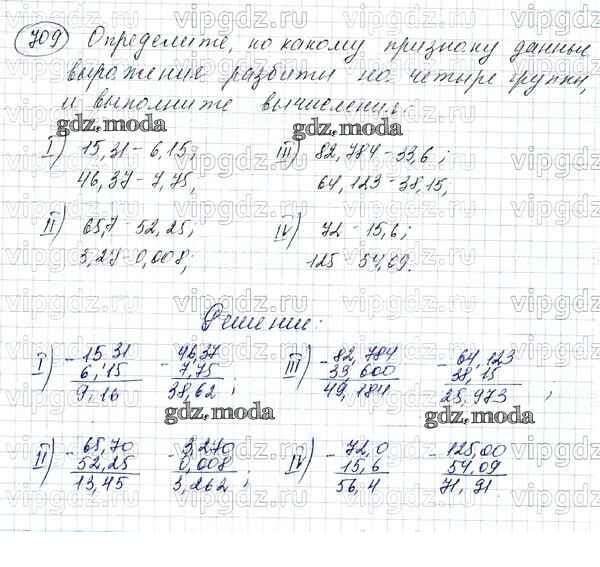 709 Определите, по какому признаку данные
выражения разбиты на четыре группы,
и выполните вычисления:
gdz.moda gdz.moda
I) 15,31 - 6,15; III) 82,784 - 33,6;
46,37 - 7,75; 64,123 - 38,15;
II) 65,7 - 52,25; IV) 72 - 15,6;
3,27 - 0,008; 125 - 54,09.
Решение:
I) - 15,31 - 46,37 III) - 82,784 - 64,123
6,15 7,75 33,600 38,15
9,16 38,62; 49,184 25,973;
gdz.moda gdz.moda
II) - 65,70 - 3,270 IV) - 72,0 - 125,00
52,25 0,008 15,6 54,09
13,45 3,262; 56,4 71,91.
vipgdz.net